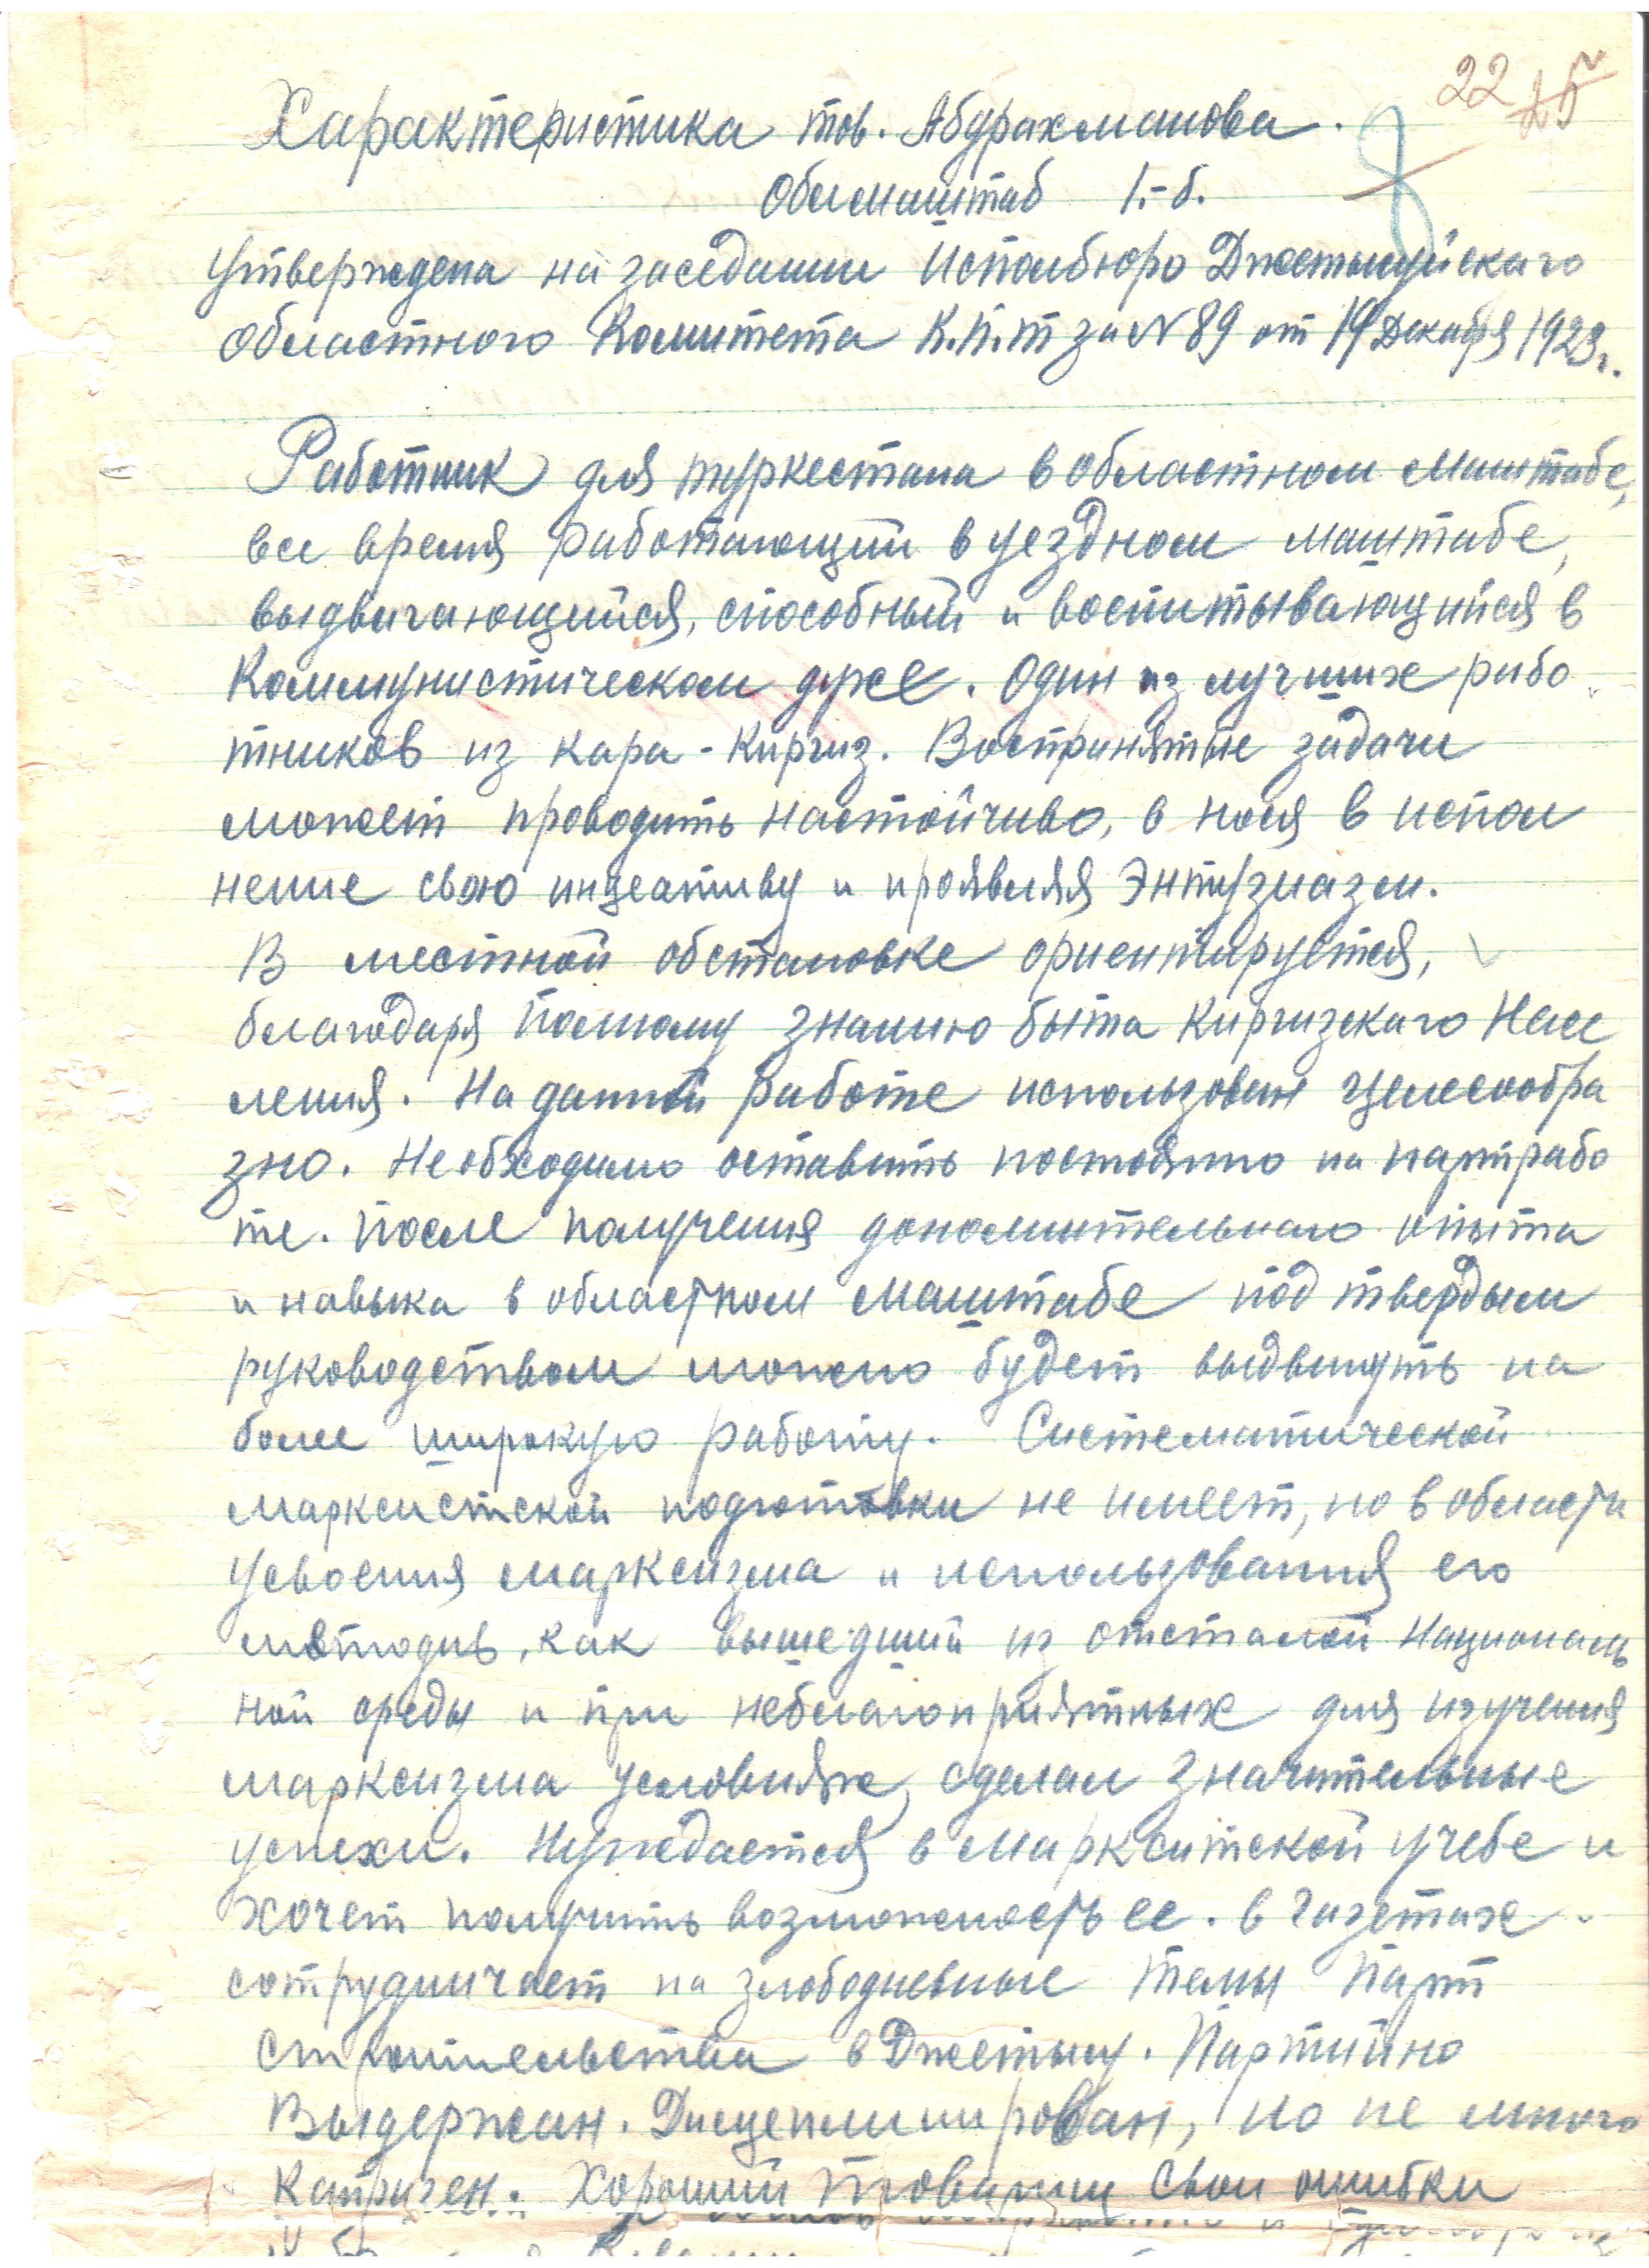 22 25
Характеристика тов. Абдрахманова.
Облмаштаб 1.-б.
Утверждена на заседании Исполбюро Джетысуйскаго
Областного Комитета К.П.Т за №89 от 19 Декабря 1923г.
Работник для туркестана в областном маштабе,
все время работающий в уездном маштабе,
выдвигающийся, способный и воспитывающийся в
Коммунистическом духе. Один из лучших рабо
тников из кара-Киргиз. Воспринятые задачи
может проводить настойчиво, в нося в испол
нение свою инцеативу и проявляя Энтузиазм.
В местной обстановке ориентируется,
благодаря полному знанию быта Киргизскаго Насе
ления. На данной работе использован целесообра
зно. Необходимо оставить постоянно на партрабо
те. После получения дополнительнаго опыта
и навыка в областном маштабе под твердым
руководством можно будет выдвинуть на
более широкую работу. Систематической
марксистской подготовки не имеет, но в области
Усвоения марксизма и использования его
методов, как вышедший из отсталой Националь
ной среды и при неблагоприятных для изучения
марксизма условиях, сделал значительные
успехи. Нуждается в Маркситской учебе и
хочет получить возможность ее. в газетах
сотрудничает на злободневные темы парт
строительства в Джетысу. Партийно
Выдержан. Дисцеплинирован, но не много
Капризен. Хороший товарищ свои ошибки